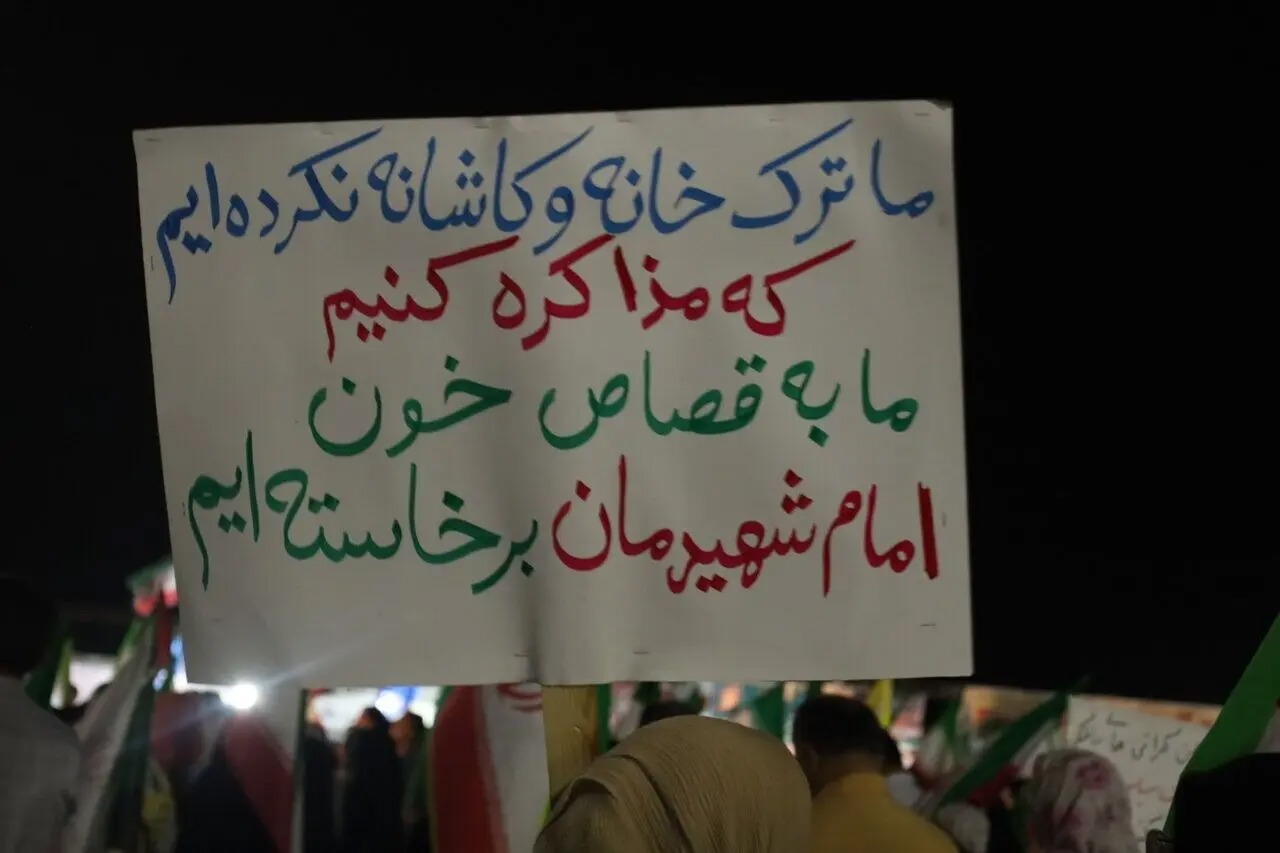 ما ترک خانه و کاشانه نکرده ایم
که مذاکره کنیم
ما به قصاص خون
امام شهیرمان برخاسته ایم